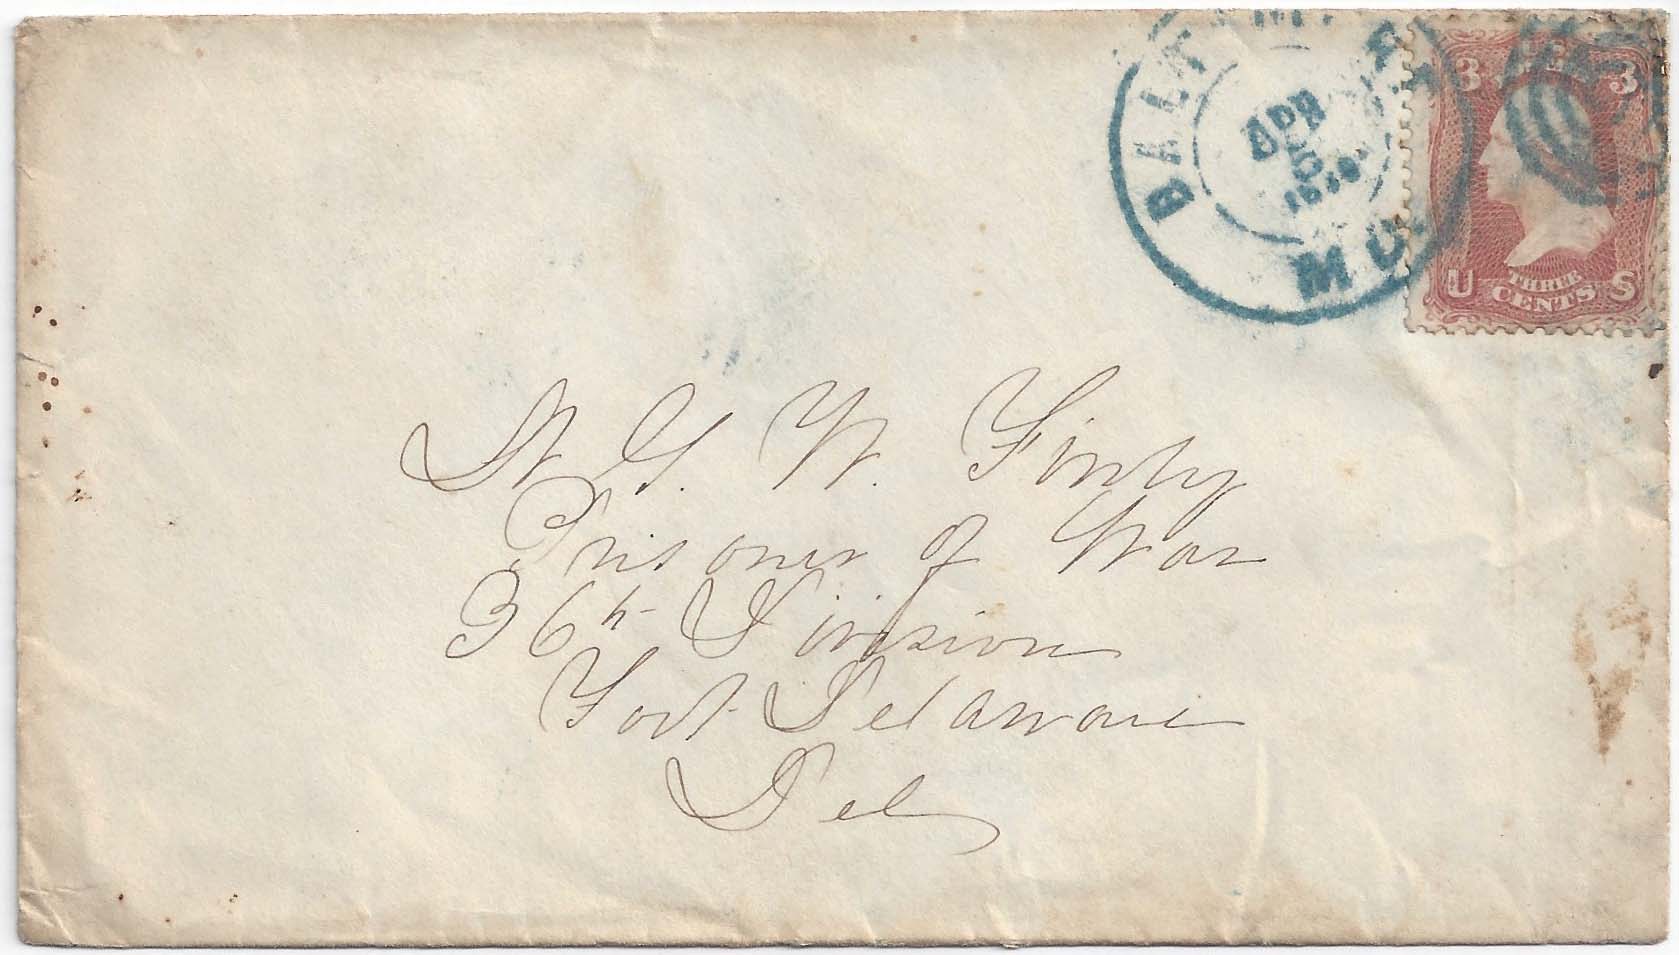 BALTIMORE
APR
5
MD.
3 3
U THREE S
CENTS
Lt G. W. Finly
Prisoner of War
36th Division
Fort Delaware
Del